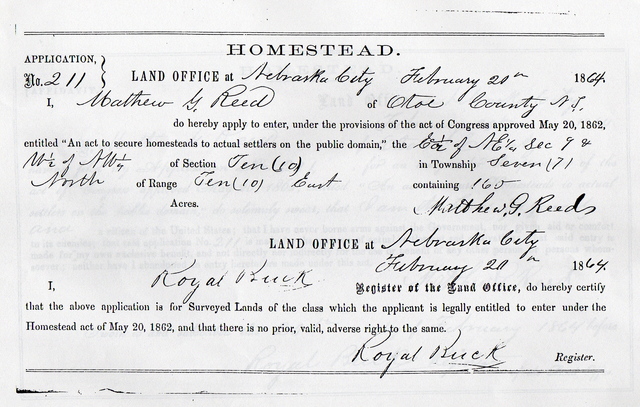 HOMESTEAD.
APPLICATION,
No. 211
LAND OFFICE at Nebraska City February 20th 1864.
I, Matthew G. Reed of Otoe County N.T.
do hereby apply to enter, under the provisions of the act of Congress approved May 20, 1862,
entitled "An act to secure homesteads to actual settlers on the public domain," the E½ of NE¼ Sec 9 &
W½ of NW¼ of Section Ten (10) in Township Seven (7)
North of Range Ten (10) East containing 160
Acres. Matthew G. Reed
LAND OFFICE at Nebraska City
February 20th 1864.
I, Royal Buck Register of the Land Office, do hereby certify
that the above application is for Surveyed Lands of the class which the applicant is legally entitled to enter under the
Homestead act of May 20, 1862, and that there is no prior, valid, adverse right to the same.
Royal Buck Register.